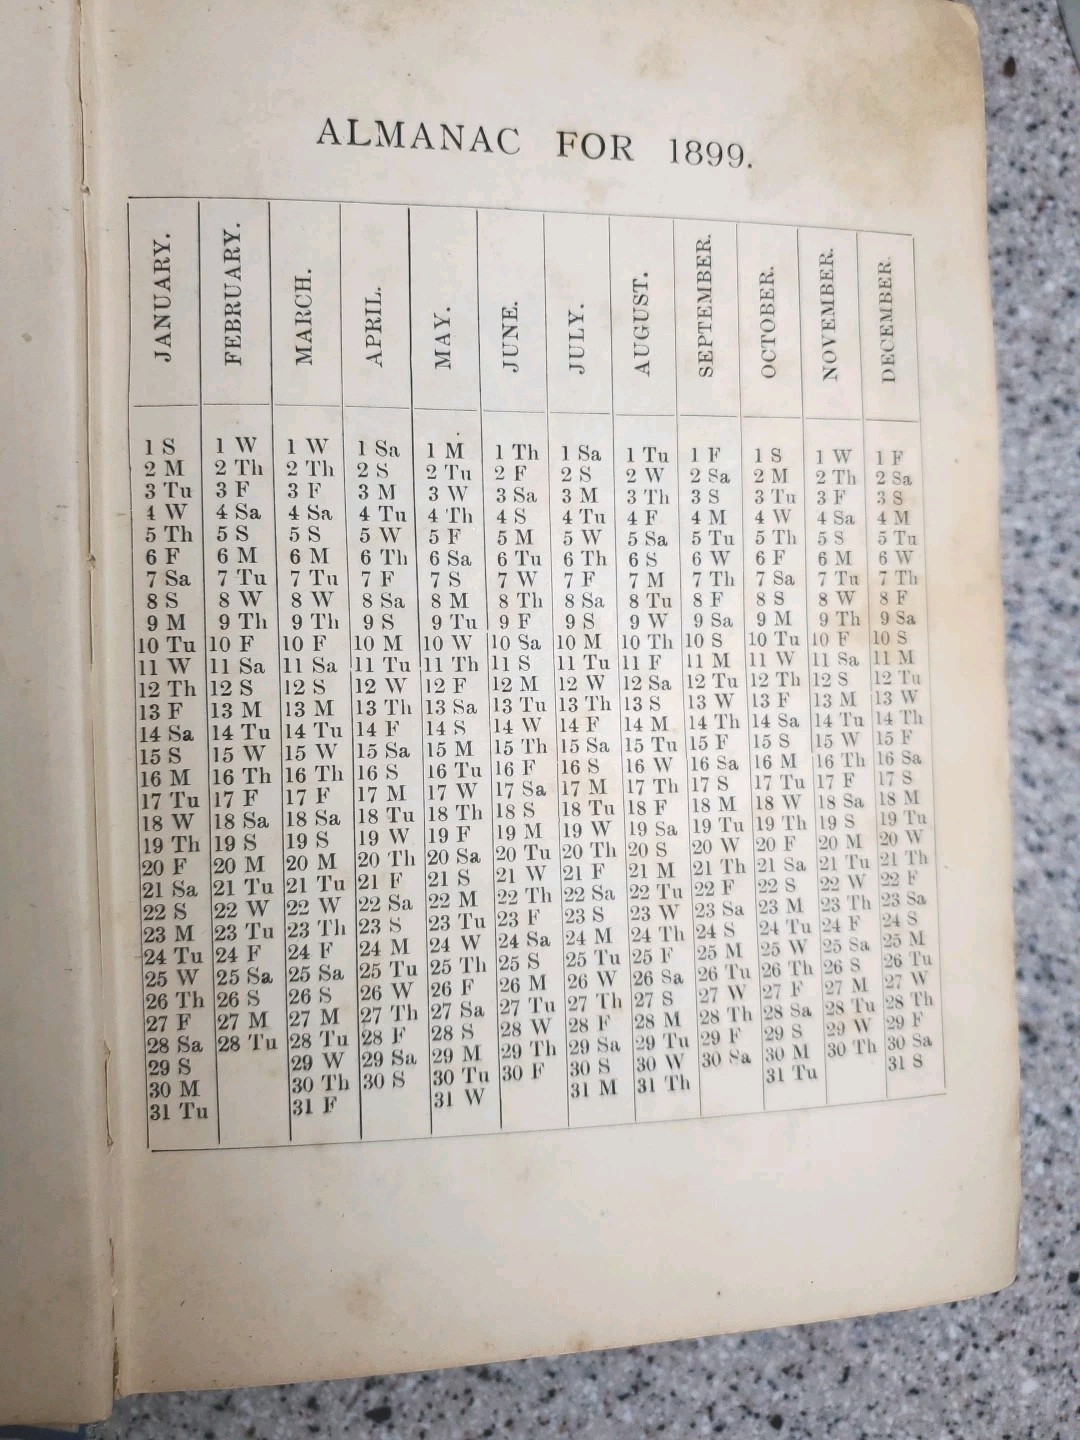 ALMANAC FOR 1899.
JANUARY. FEBRUARY. MARCH. APRIL. MAY. JUNE. JULY. AUGUST. SEPTEMBER. OCTOBER. NOVEMBER. DECEMBER.
1 S 1 W 1 W 1 Sa 1 M 1 Th 1 Sa 1 Tu 1 F 1 S 1 W 1 F
2 M 2 Th 2 Th 2 S 2 Tu 2 F 2 S 2 W 2 Sa 2 M 2 Th 2 Sa
3 Tu 3 F 3 F 3 M 3 W 3 Sa 3 M 3 Th 3 S 3 Tu 3 F 3 S
4 W 4 Sa 4 Sa 4 Tu 4 Th 4 S 4 Tu 4 F 4 M 4 W 4 Sa 4 M
5 Th 5 S 5 S 5 W 5 F 5 M 5 W 5 Sa 5 Tu 5 Th 5 S 5 Tu
6 F 6 M 6 M 6 Th 6 Sa 6 Tu 6 Th 6 S 6 W 6 F 6 M 6 W
7 Sa 7 Tu 7 Tu 7 F 7 S 7 W 7 F 7 M 7 Th 7 Sa 7 Tu 7 Th
8 S 8 W 8 W 8 Sa 8 M 8 Th 8 Sa 8 Tu 8 F 8 S 8 W 8 F
9 M 9 Th 9 Th 9 S 9 Tu 9 F 9 S 9 W 9 Sa 9 M 9 Th 9 Sa
10 Tu 10 F 10 F 10 M 10 W 10 Sa 10 M 10 Th 10 S 10 Tu 10 F 10 S
11 W 11 Sa 11 Sa 11 Tu 11 Th 11 S 11 Tu 11 F 11 M 11 W 11 Sa 11 M
12 Th 12 S 12 S 12 W 12 F 12 M 12 W 12 Sa 12 Tu 12 Th 12 S 12 Tu
13 F 13 M 13 M 13 Th 13 Sa 13 Tu 13 Th 13 S 13 W 13 F 13 M 13 W
14 Sa 14 Tu 14 Tu 14 F 14 S 14 W 14 F 14 M 14 Th 14 Sa 14 Tu 14 Th
15 S 15 W 15 W 15 Sa 15 M 15 Th 15 Sa 15 Tu 15 F 15 S 15 W 15 F
16 M 16 Th 16 Th 16 S 16 Tu 16 F 16 S 16 W 16 Sa 16 M 16 Th 16 Sa
17 Tu 17 F 17 F 17 M 17 W 17 Sa 17 M 17 Th 17 S 17 Tu 17 F 17 S
18 W 18 Sa 18 Sa 18 Tu 18 Th 18 S 18 Tu 18 F 18 M 18 W 18 Sa 18 M
19 Th 19 S 19 S 19 W 19 F 19 M 19 W 19 Sa 19 Tu 19 Th 19 S 19 Tu
20 F 20 M 20 M 20 Th 20 Sa 20 Tu 20 Th 20 S 20 W 20 F 20 M 20 W
21 Sa 21 Tu 21 Tu 21 F 21 S 21 W 21 F 21 M 21 Th 21 Sa 21 Tu 21 Th
22 S 22 W 22 W 22 Sa 22 M 22 Th 22 Sa 22 Tu 22 F 22 S 22 W 22 F
23 M 23 Tu 23 Th 23 S 23 Tu 23 F 23 S 23 W 23 Sa 23 M 23 Th 23 Sa
24 Tu 24 F 24 F 24 M 24 W 24 Sa 24 M 24 Th 24 S 24 Tu 24 F 24 S
25 W 25 Sa 25 Sa 25 Tu 25 Th 25 S 25 Tu 25 F 25 M 25 W 25 Sa 25 M
26 Th 26 S 26 S 26 W 26 F 26 M 26 W 26 Sa 26 Tu 26 Th 26 S 26 Tu
27 F 27 M 27 M 27 Th 27 Sa 27 Tu 27 Th 27 S 27 W 27 F 27 M 27 W
28 Sa 28 Tu 28 Tu 28 F 28 S 28 W 28 F 28 M 28 Th 28 Sa 28 Tu 28 Th
29 S 29 W 29 Sa 29 M 29 Th 29 Sa 29 Tu 29 F 29 S 29 W 29 F
30 M 30 Th 30 S 30 Tu 30 F 30 S 30 W 30 Sa 30 M 30 Th 30 Sa
31 Tu 31 F 31 W 31 M 31 Th 31 Tu 31 S